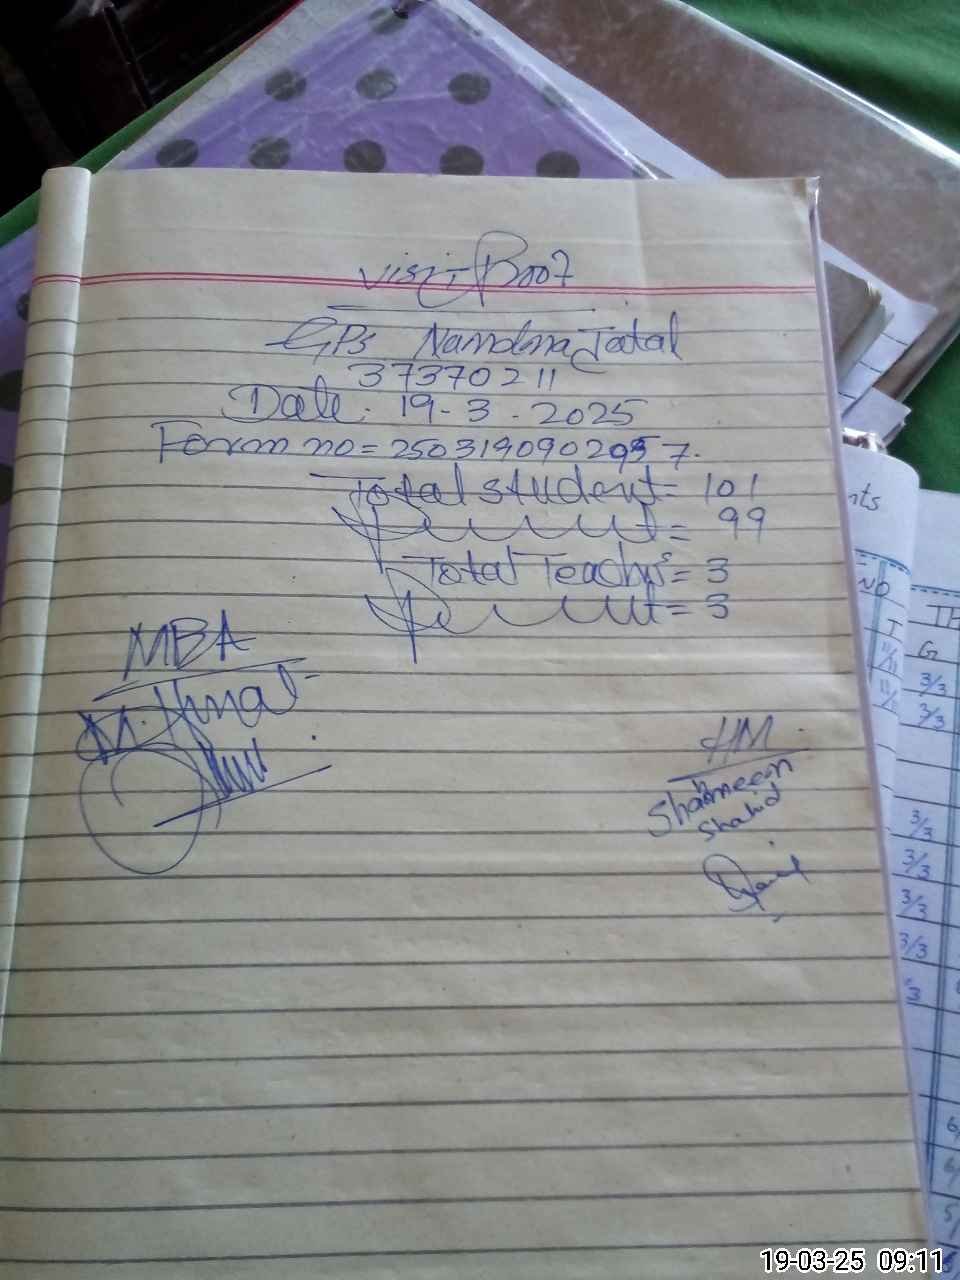 Visit Book
GPS Namdna Jatal
37370211
Date. 19-3-2025
Form no=
Total student= 101
Present= 99
Total Teachers= 3
Present= 3
MBA
HM
Shahid
nts
NO
TH
T
G
11/11
3/3
11/11
3/3
3/3
3/3
3/3
3/3
19-03-25 09:11